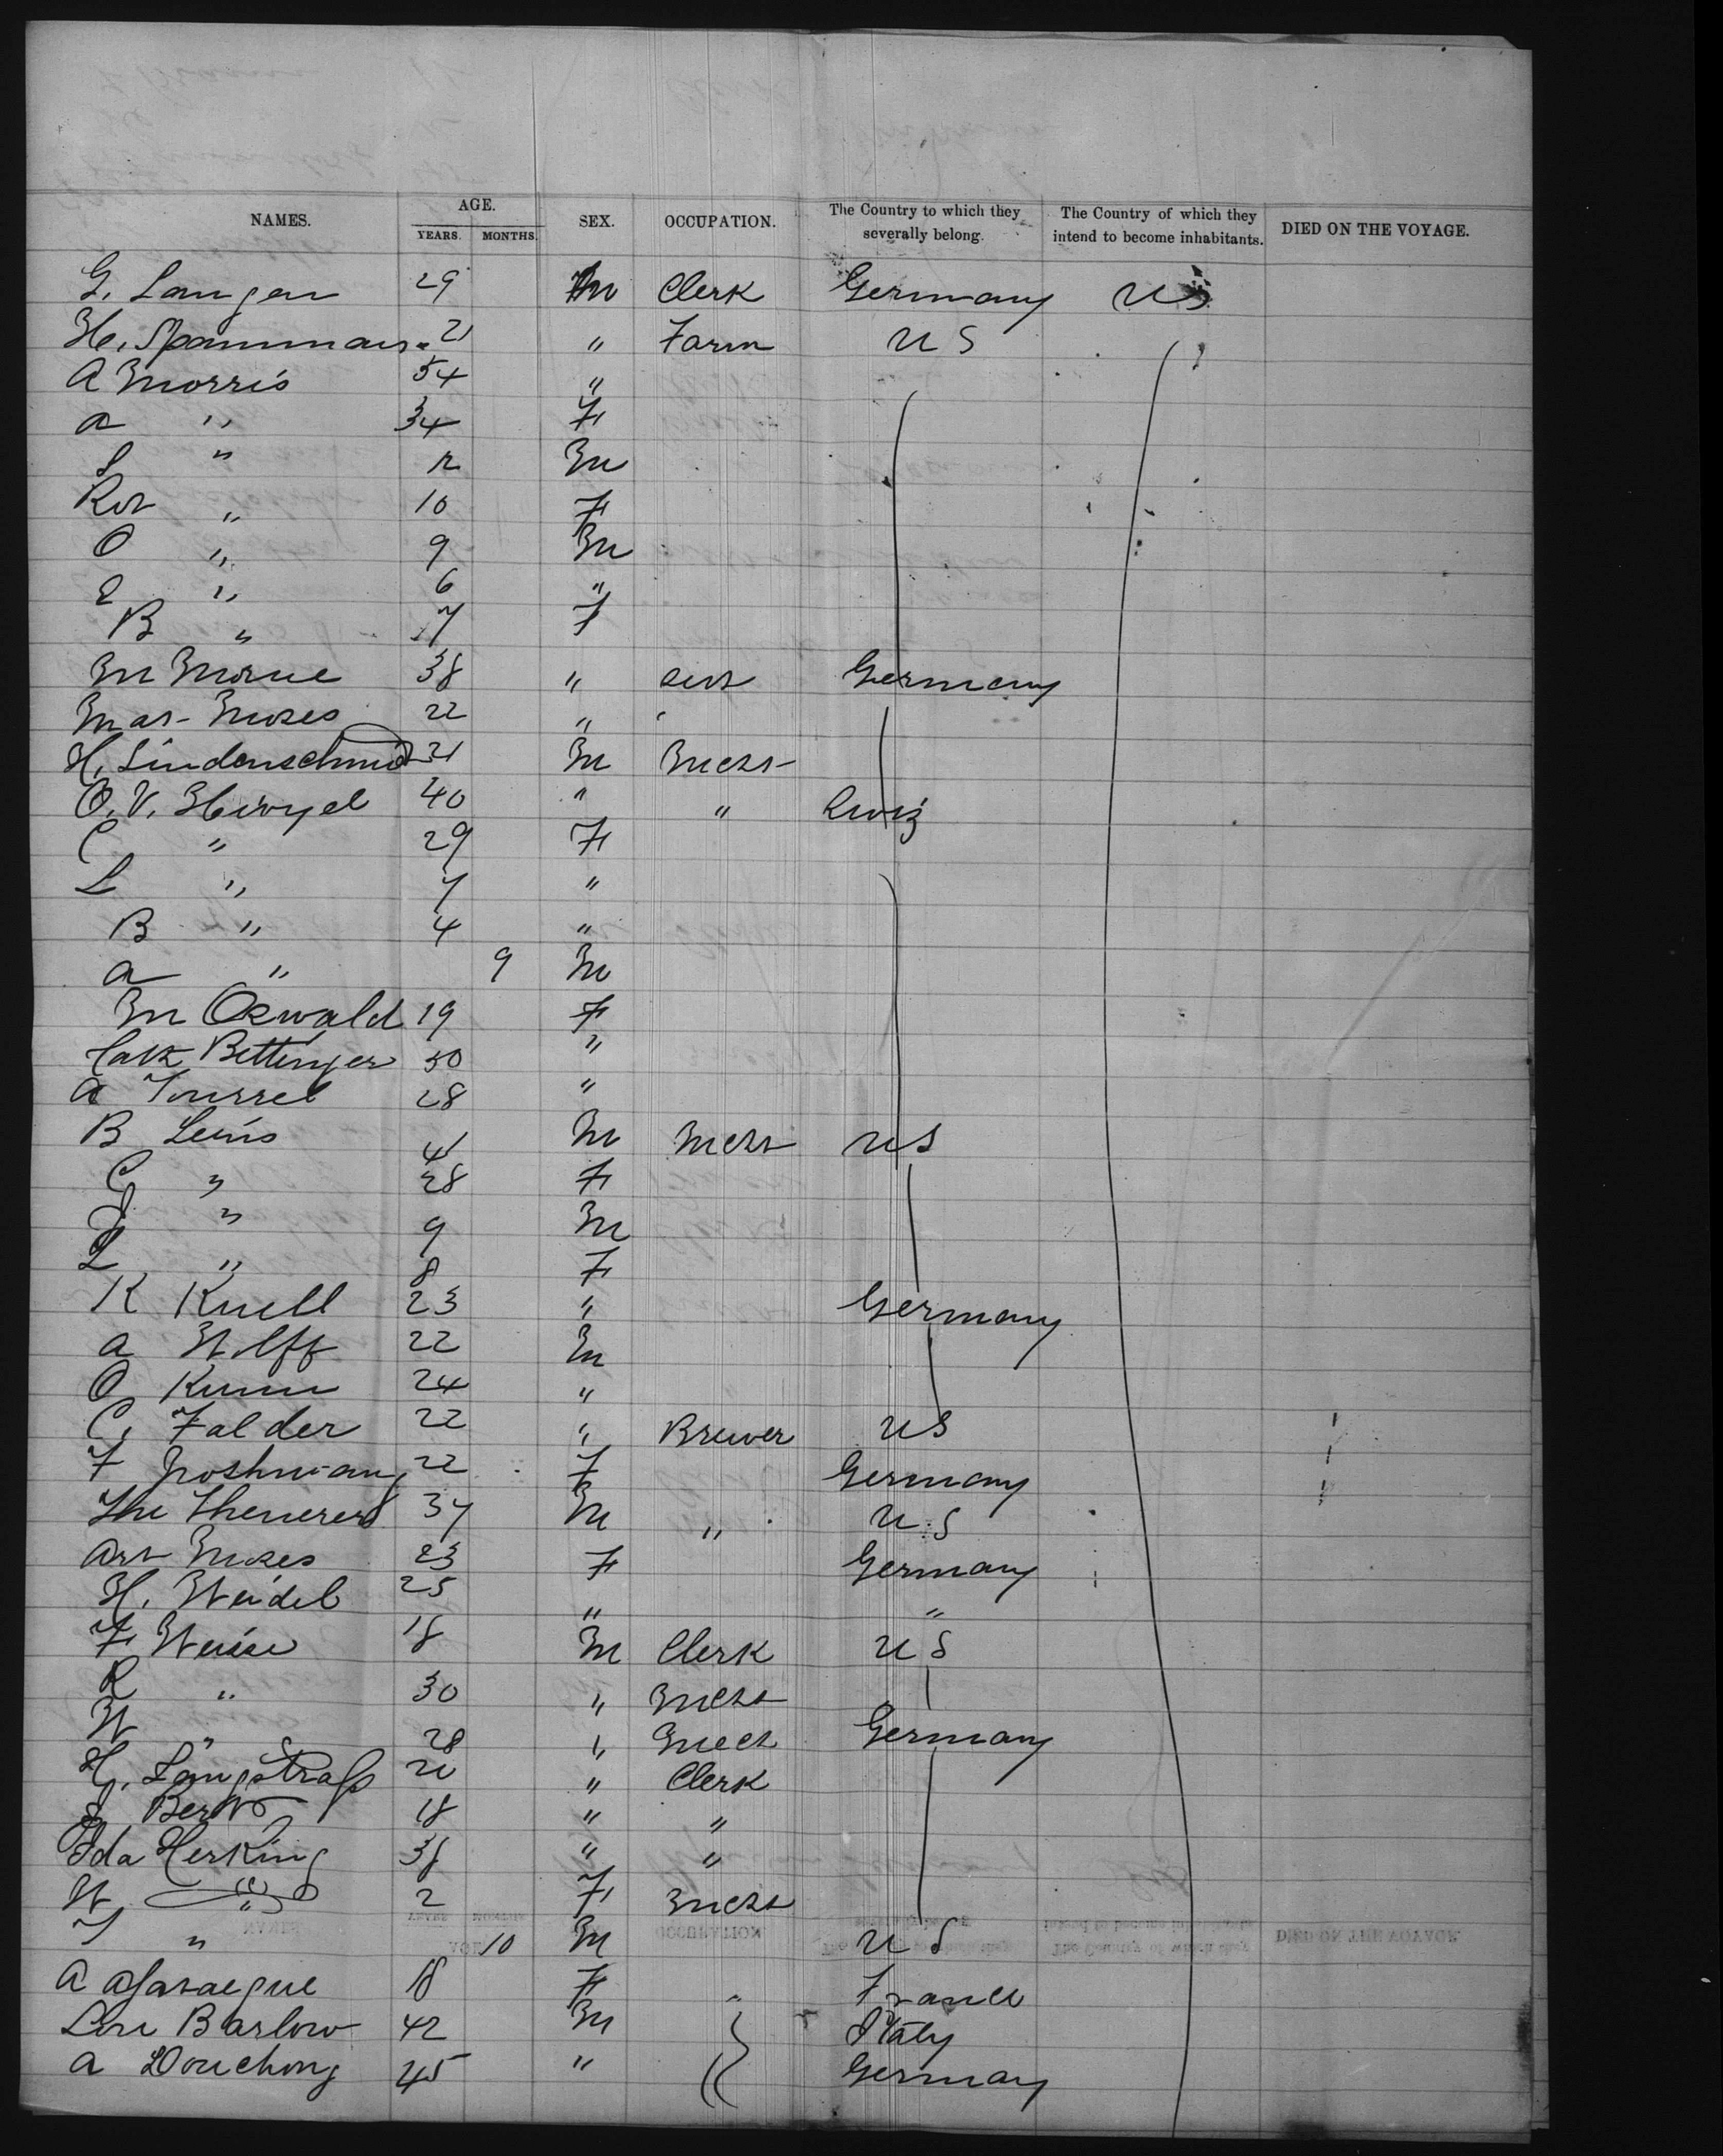 NAMES. AGE. YEARS. MONTHS. SEX. OCCUPATION. The Country to which they severally belong. The Country of which they intend to become inhabitants. DIED ON THE VOYAGE.
G. Langen 29 M Clerk Germany US
H. Spammaus 21 " Farm US
A Morris 54 "
A " 34 F
S " 12 M
Ros " 10 F
O " 9 M
E " 6 "
B " 7 F
M Morue 38 " Germany
Mar- Moses 22 "
H. Lindenschmid 31 M Mcht
O. V. 40 " " Swiz
C " 29 F
L " 7 "
B " 4 "
A " 9 M
M Oswald 19 F
Cath Bettinger 50 "
A Tourrel 28 "
B Lewis 41 M Mcht US
C " 28 F
J " 9 M
L " 8 F
K Knell 23 " Germany
A Wolff 22 M
O Kumm 24 "
C. Falder 22 " Brewer US
F 22 F Germany
The 37 M " US
Moses 23 F Germany
H. Weidel 25 " "
F Weise 18 M Clerk US
R " 30 " Mcht
W " 28 " Mech Germany
H. Langstrass 20 " Clerk
J 18 " "
Ida Herking 38 " "
W " 2 F Mcht
F " 10 M US
A 18 F " France
Barlow 42 M Italy
A Douchong 45 " Germany